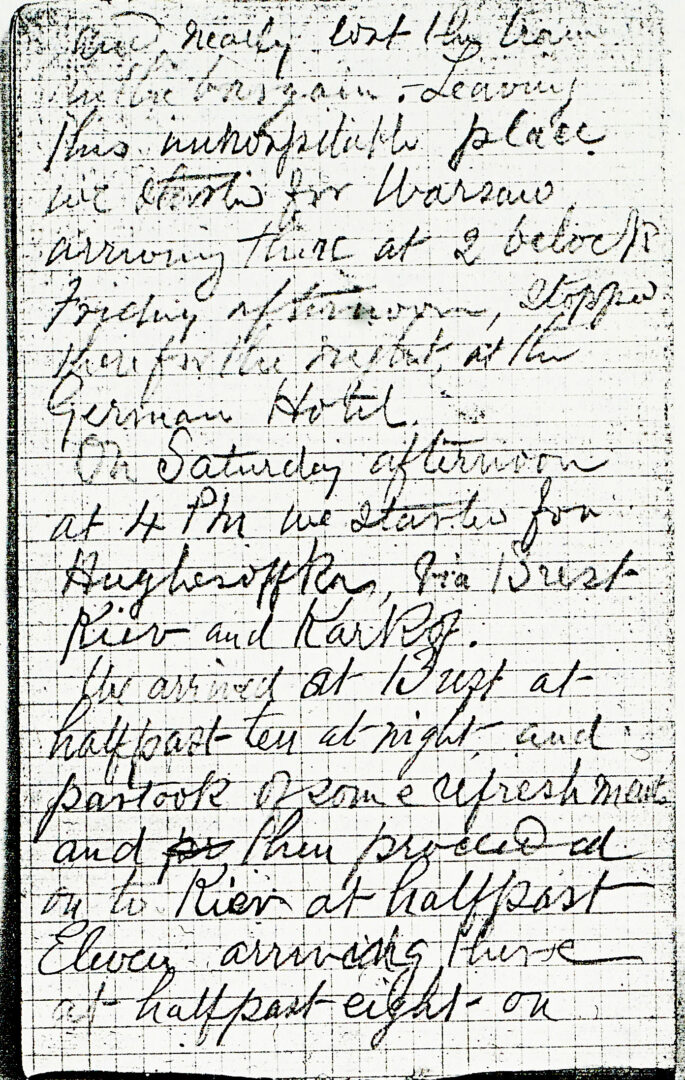 and nearly lost the train
in the bargain. Leaving
this inhospitable place
we started for Warsaw
arriving there at 2 oclock
Friday afternoon, stopped
there for the night, at the
German Hotel.
On Saturday afternoon
at 4 PM we started for
Hughesoffka, Via Brest
Kiev and Karkof.
We arrived at Brest at
halfpast ten at night, and
partook of some refreshments
and then proceeded
on to Kiev at halfpast
Eleven arriving there
at halfpast eight on